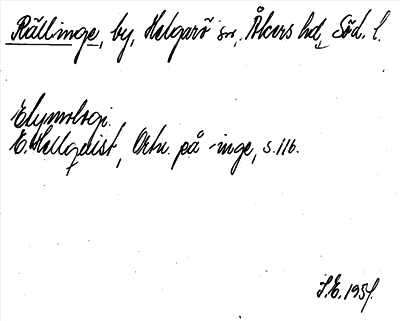 Rällinge, by, Helgarö sn, Åkers hd, Söd. l.
Etymologi.
E. Hellquist, Ortn. på -inge, s. 116.
I.E. 1954.